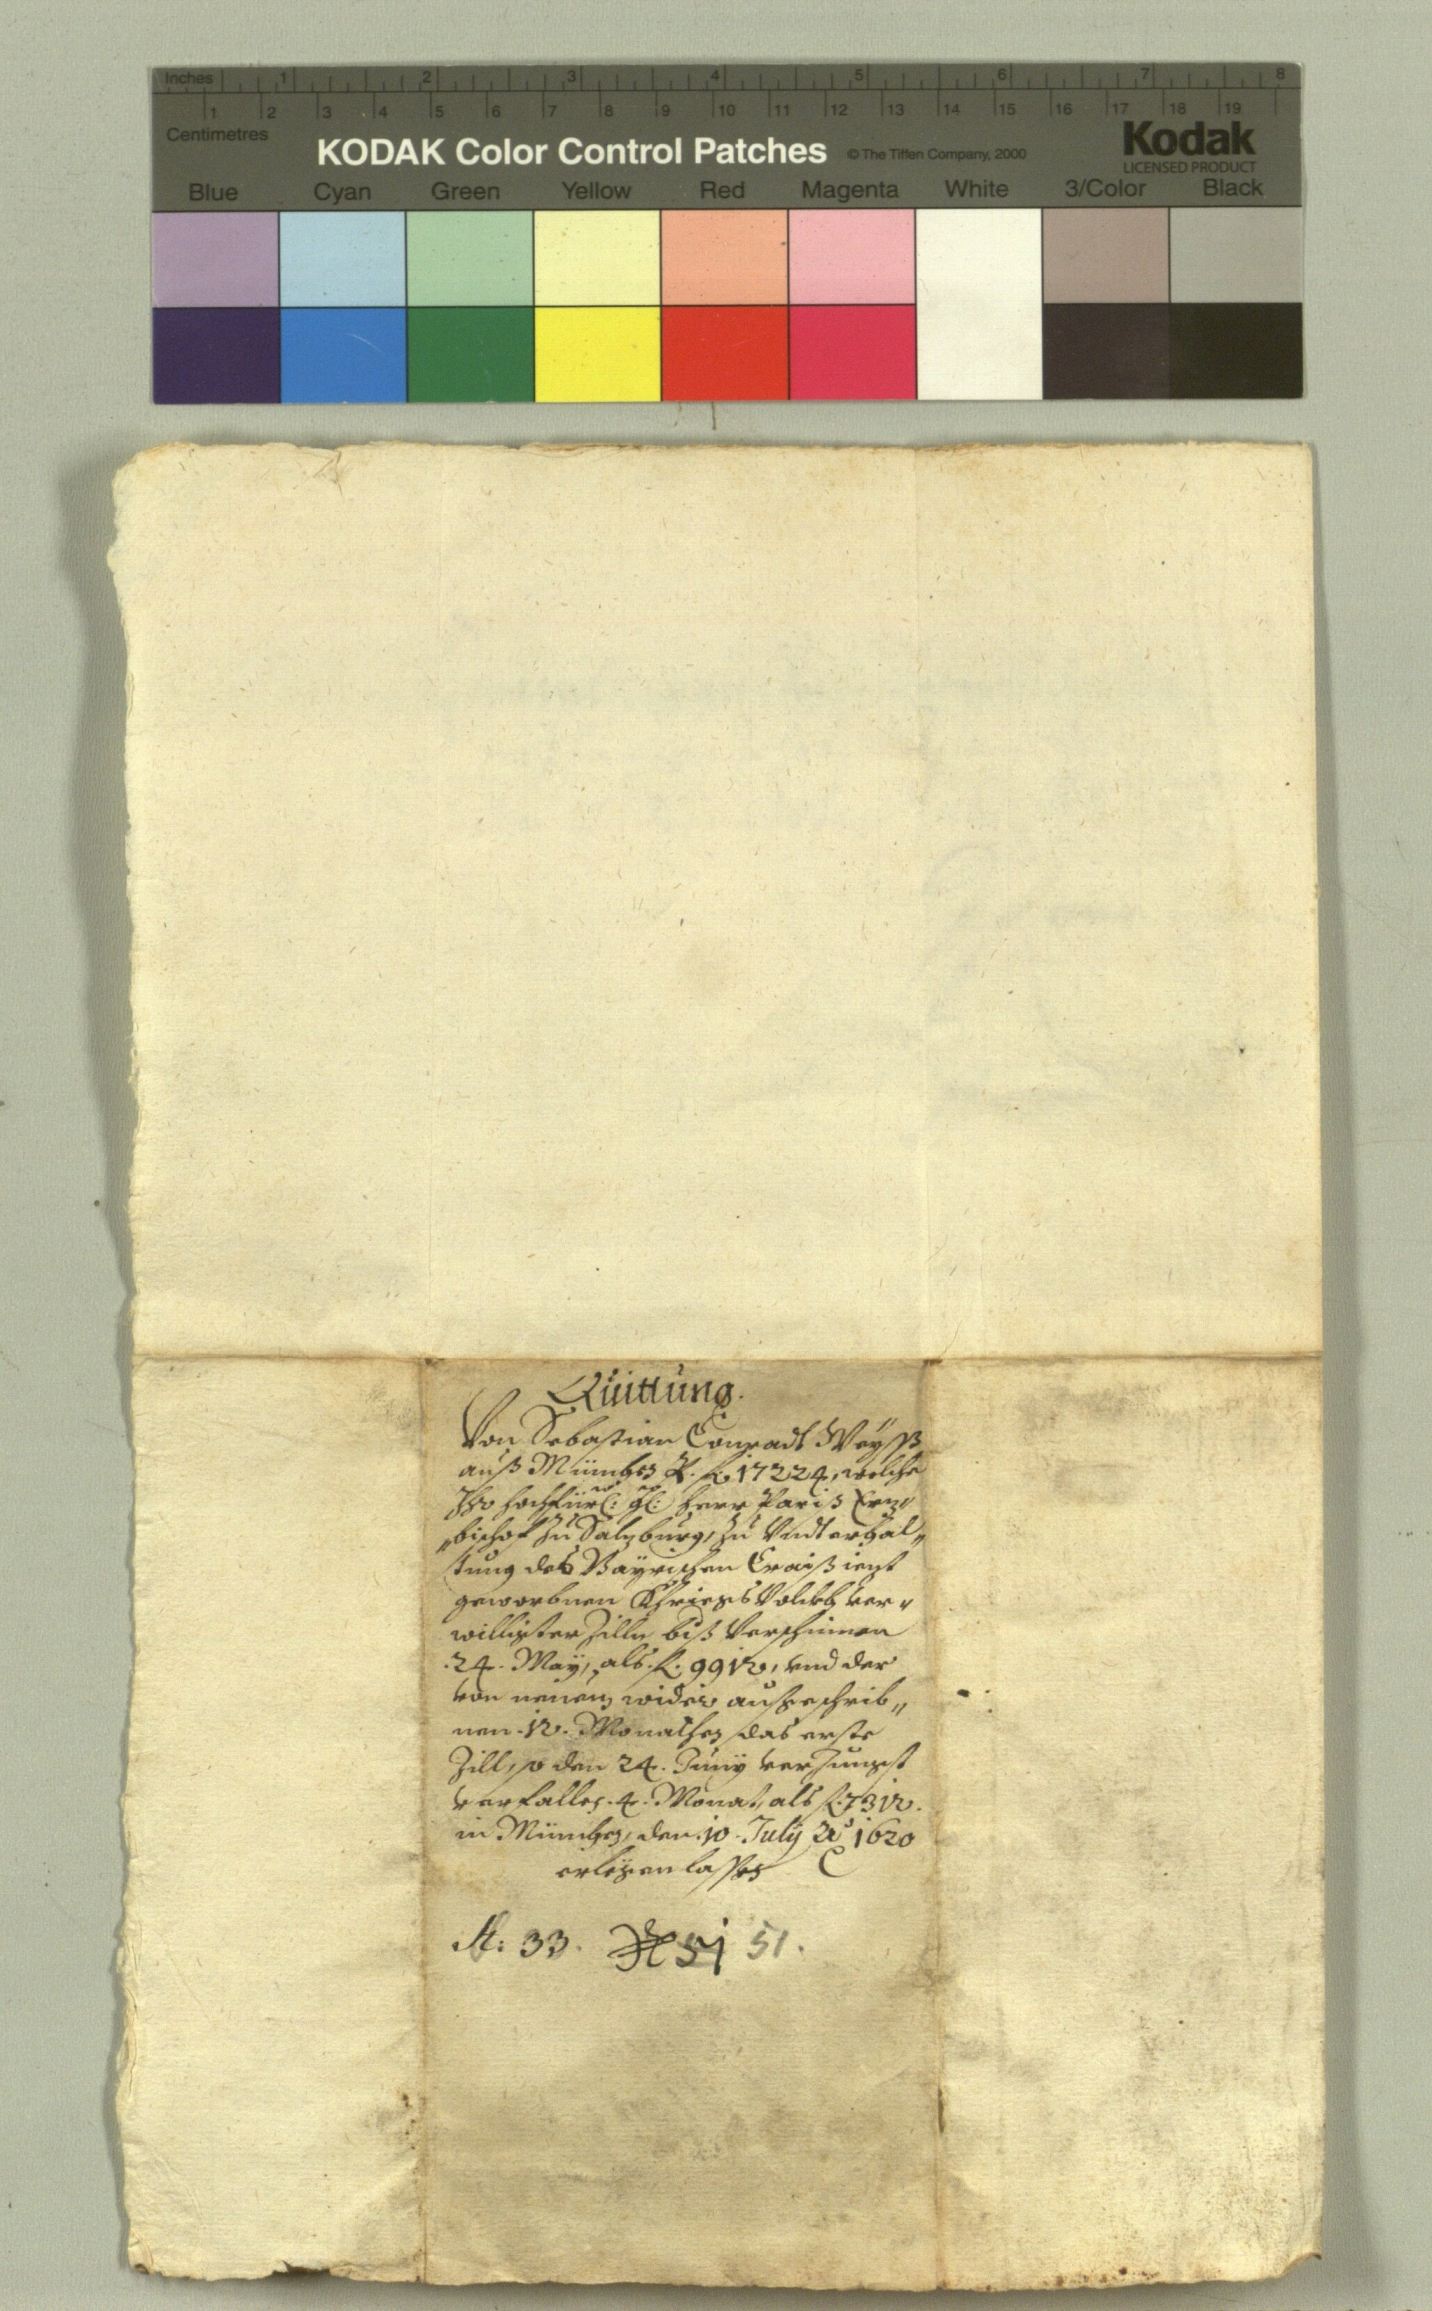 Inches 1 2 3 4 5 6 7 8
1 2 3 4 5 6 7 8 9 10 11 12 13 14 15 16 17 18 19
Centimetres
KODAK Color Control Patches © The Tiffen Company, 2000 Kodak
LICENSED PRODUCT
Blue Cyan Green Yellow Red Magenta White 3/Color Black
Quittung.
Von Sebastian Conradt Weyss
auß München P. fl. 17224, welche
Ihr hochfürl: gl: herr Paris Erz„
„bischof zu Salzburg, zu Vndterhal„
tung des Bayrischen Craiß iezt
geworbnen Khriegs Volckhs ver„
willigter Zilln biß Verschinnen
.24. May, als fl. 9912, vnd der
von neuem wider außgeschrib„
nen .12. Monathen das erste
Zill, so den 24. Juny verschinen
verfallen .4. Monat, als fl. 7312.
in München, den 10 July Ao 1620
erlegen lassen
N: 33. N 51 51.